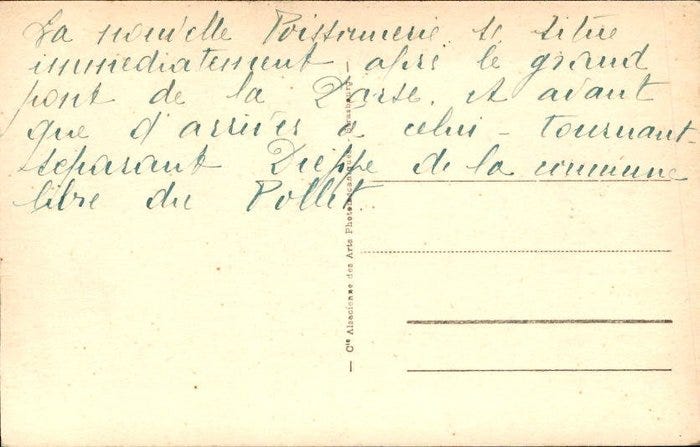 La nouvelle Poissonnerie se situe
immédiatement après le grand
pont de la Darse. et avant
que d'arriver à celui - tournant-
séparant Dieppe de la commune
libre du Pollet.
— Cie Alsacienne des Arts Photomécaniques, Strasbourg —